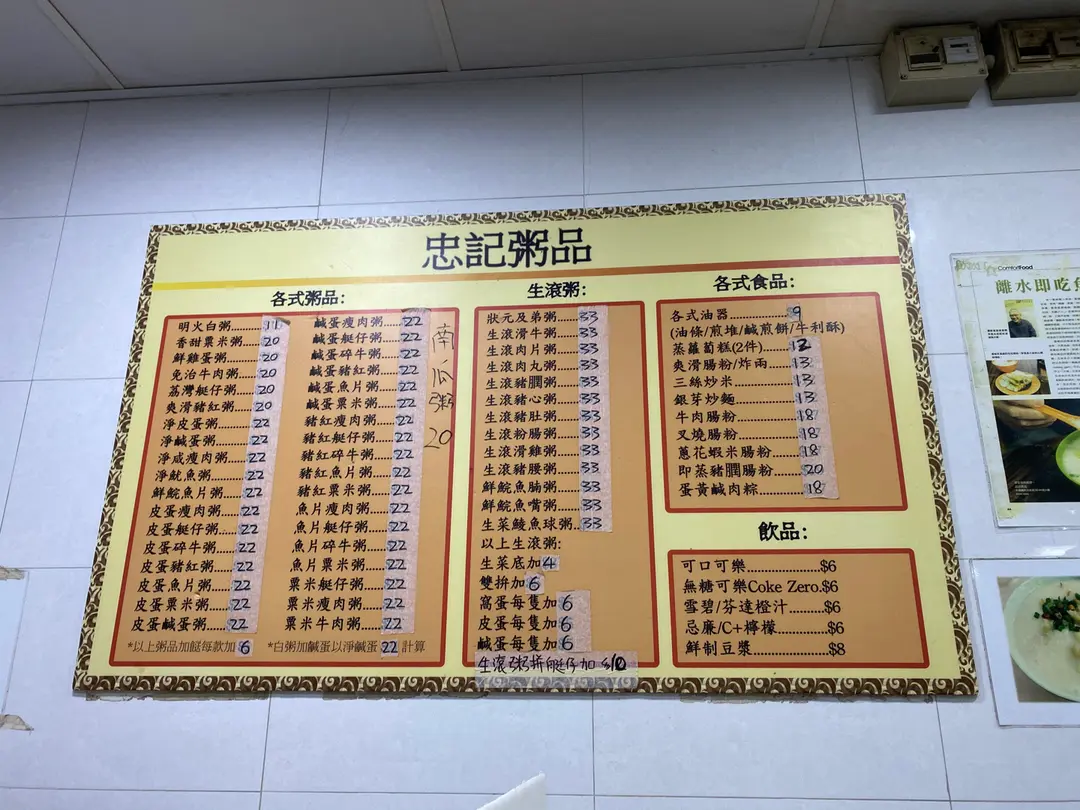 忠記粥品
各式粥品:
明火白粥............11
香甜粟米粥.....20
鮮雞蛋粥..........20
免治牛肉粥.....20
荔灣艇仔粥.....20
爽滑豬紅粥.....20
淨皮蛋粥..........22
淨鹹蛋粥..........22
淨咸瘦肉粥.....22
淨魷魚粥..........22
鮮鯇魚片粥.....22
皮蛋瘦肉粥.....22
皮蛋艇仔粥.....22
皮蛋碎牛粥.....22
皮蛋豬紅粥.....22
皮蛋魚片粥.....22
皮蛋粟米粥.....22
皮蛋鹹蛋粥.....22
鹹蛋瘦肉粥.....22
鹹蛋艇仔粥.....22
鹹蛋碎牛粥.....22
鹹蛋豬紅粥.....22
鹹蛋魚片粥.....22
鹹蛋粟米粥.....22
豬紅瘦肉粥.....22
豬紅艇仔粥.....22
豬紅碎牛粥.....22
豬紅魚片粥.....22
豬紅粟米粥.....22
魚片瘦肉粥.....22
魚片艇仔粥.....22
魚片碎牛粥.....22
魚片粟米粥.....22
粟米艇仔粥.....22
粟米瘦肉粥.....22
粟米牛肉粥.....22
南瓜粥20
*以上粥品加餸每款加6
*白粥加鹹蛋以淨鹹蛋22計算
生滾粥:
狀元及弟粥.....33
生滾滑牛粥.....33
生滾肉片粥.....33
生滾肉丸粥.....33
生滾豬膶粥.....33
生滾豬心粥.....33
生滾豬肚粥.....33
生滾粉腸粥.....33
生滾滑雞粥.....33
生滾豬腰粥.....33
鮮鯇魚腩粥.....33
鮮鯇魚嘴粥.....33
生菜鯪魚球粥..33
以上生滾粥:
生菜底加4
雙拼加6
窩蛋每隻加6
皮蛋每隻加6
鹹蛋每隻加6
生滾粥拼艇仔加$10
各式食品:
各式油器................9
(油條/煎堆/鹹煎餅/牛利酥)
蒸蘿蔔糕(2件)......12
爽滑腸粉/炸両......13
三絲炒米...............13
銀芽炒麵...............13
牛肉腸粉...............18
叉燒腸粉...............18
蔥花蝦米腸粉........18
即蒸豬膶腸粉........20
蛋黃鹹肉粽...........18
飲品:
可口可樂................$6
無糖可樂Coke Zero.$6
雪碧/芬達橙汁........$6
忌廉/C+檸檬...........$6
鮮制豆漿................$8
ComfortFood
離水即吃